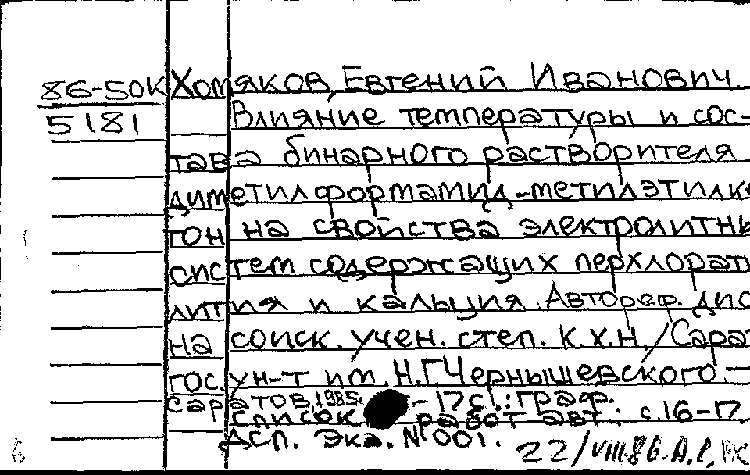 86-50К Хомяков, Евгений Иванович.
5181 Влияние температуры и сос-
тава бинарного растворителя
диметилформамид-метилэтилке
тон на свойства электролитны
систем содержащих перхлорат
лития и кальция. Автореф. дис
на соиск. учен. степ. к.х.н. / Сарат
гос. ун-т им. Н.Г.Чернышевского. —
Саратов, 1985. - 17 с.: граф.
Список работ авт.: с.16-17.
ДСП. Экз. №001.
22/VIII.86.